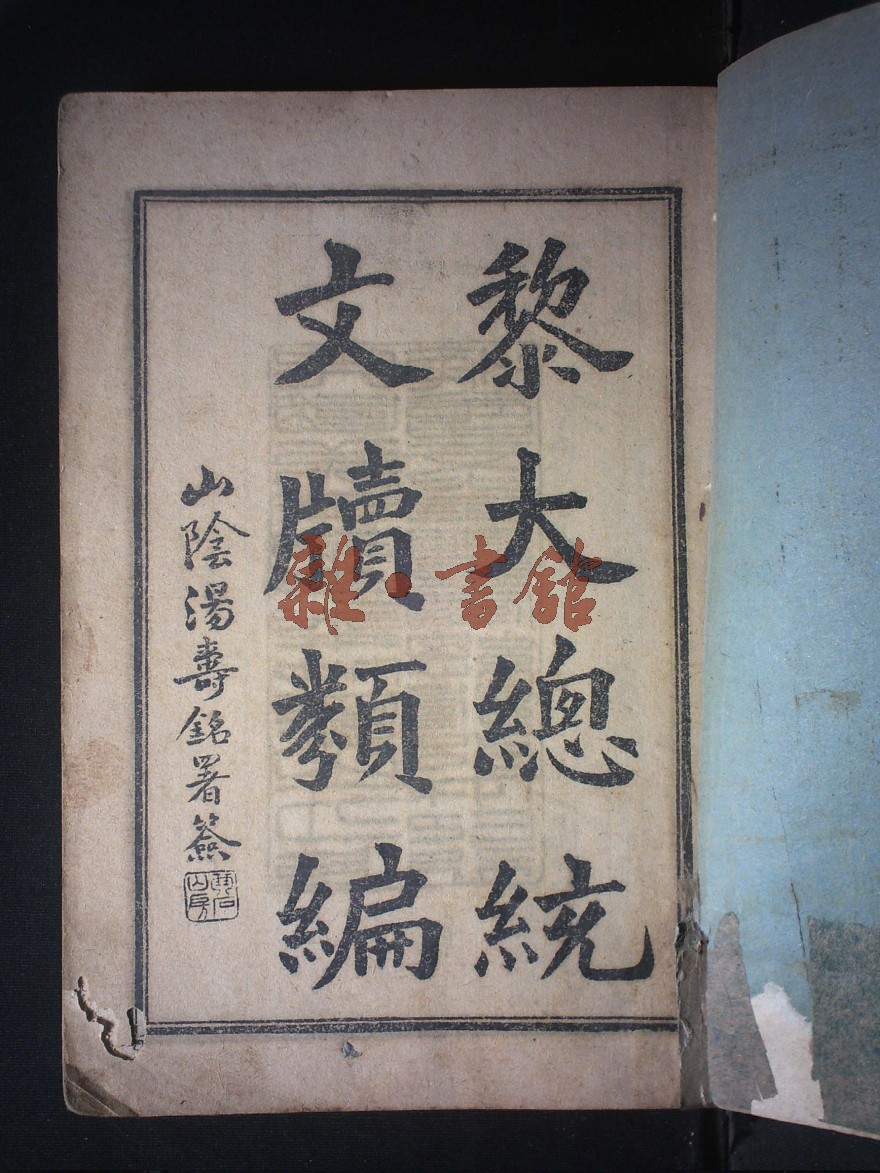 黎大總統
文牘類編
山陰湯壽銘署簽
雜·書館